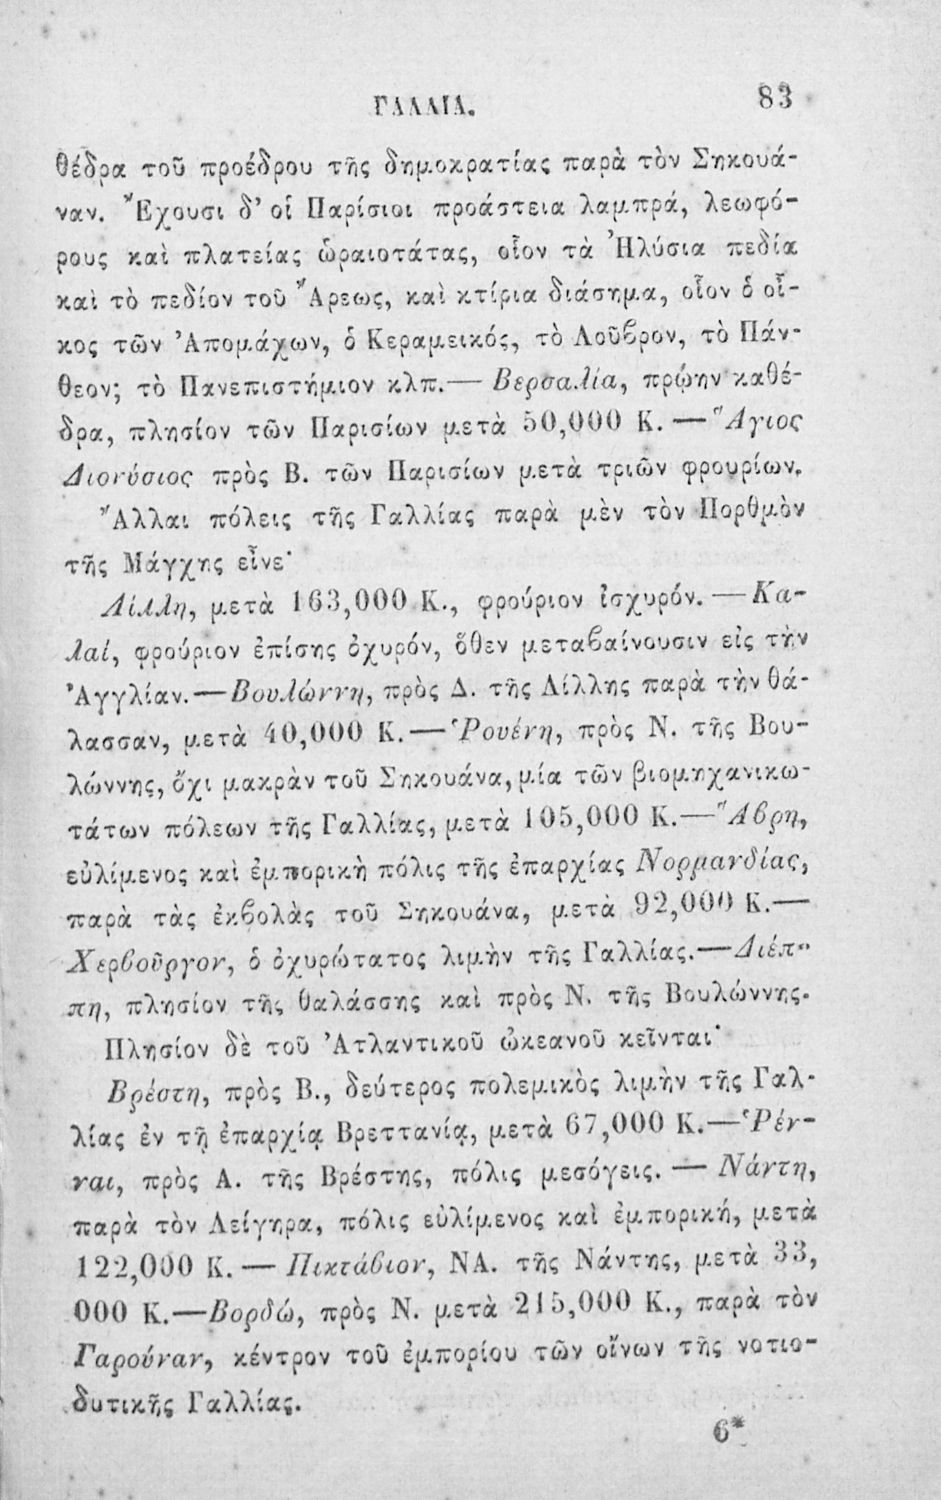 ΓΑΛΛΙΑ. 83
θέδρα τοῦ προέδρου τῆς δημοκρατίας παρὰ τὸν Σηκουά-
ναν. Ἔχουσι δ’ οἱ Παρίσιοι προάστεια λαμπρά, λεωφό-
ρους καὶ πλατείας ὡραιοτάτας, οἷον τὰ Ἠλύσια πεδία
καὶ τὸ πεδίον τοῦ Ἄρεως, καὶ κτίρια διάσημα, οἷον ὁ οἶ-
κος τῶν Ἀπομάχων, ὁ Κεραμεικός, τὸ Λοῦβρον, τὸ Πάν-
θεον; τὸ Πανεπιστήμιον κλπ.— Βερσαλία, πρῴην καθέ-
δρα, πλησίον τῶν Παρισίων μετὰ 50,000 Κ. — Ἅγιος
Διονύσιος πρὸς Β. τῶν Παρισίων μετὰ τριῶν φρουρίων.
Ἄλλαι πόλεις τῆς Γαλλίας παρὰ μὲν τὸν Πορθμὸν
τῆς Μάγχης εἶνε·
Λίλλη, μετὰ 163,000 Κ., φρούριον ἰσχυρόν. — Κα-
λαί, φρούριον ἐπίσης ὀχυρόν, ὅθεν μεταβαίνουσιν εἰς τὴν
Ἀγγλίαν.— Βουλώννη, πρὸς Δ. τῆς Λίλλης παρὰ τὴν θά-
λασσαν, μετὰ 40,000 Κ.— Ῥουένη, πρὸς Ν. τῆς Βου-
λώννης, ὄχι μακρὰν τοῦ Σηκουάνα, μία τῶν βιομηχανικω-
τάτων πόλεων τῆς Γαλλίας, μετὰ 105,000 Κ.— Ἅβρη,
εὐλίμενος καὶ ἐμπορικὴ πόλις τῆς ἐπαρχίας Νορμανδίας,
παρὰ τὰς ἐκβολὰς τοῦ Σηκουάνα, μετὰ 92,000 Κ.—
Χερβοῦργον, ὁ ὀχυρώτατος λιμὴν τῆς Γαλλίας.—Διέπ-
πη, πλησίον τῆς θαλάσσης καὶ πρὸς Ν. τῆς Βουλώννης.
Πλησίον δὲ τοῦ Ἀτλαντικοῦ ὠκεανοῦ κεῖνται·
Βρέστη, πρὸς Β., δεύτερος πολεμικὸς λιμὴν τῆς Γαλ-
λίας ἐν τῇ ἐπαρχίᾳ Βρεττανίᾳ, μετὰ 67,000 Κ.—Ῥέν-
ναι, πρὸς Α. τῆς Βρέστης, πόλις μεσόγεις. — Νάντη,
παρὰ τὸν Λείγηρα, πόλις εὐλίμενος καὶ ἐμπορική, μετὰ
122,000 Κ.— Πικτάβιον, ΝΑ. τῆς Νάντης, μετὰ 33,
000 Κ.—Βορδώ, πρὸς Ν. μετὰ 215,000 Κ., παρὰ τὸν
Γαρούναν, κέντρον τοῦ ἐμπορίου τῶν οἴνων τῆς νοτιο-
δυτικῆς Γαλλίας.
6*